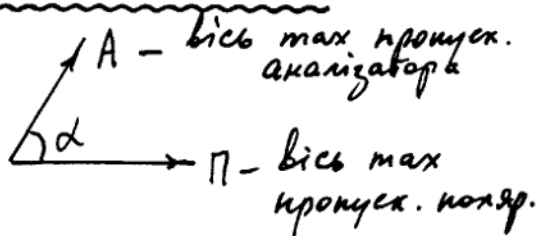 A – вісь max пропуск.
аналізатора
α
П – вісь max
пропуск. поляр.